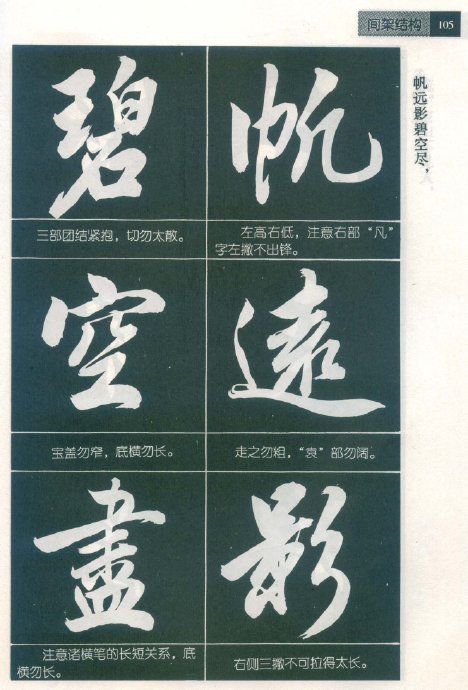 间架结构 105
帆远影碧空尽，
帆
左高右低，注意右部“凡”
字左撇不出锋。
遠
走之勿粗，“袁”部勿阔。
影
右侧三撇不可拉得太长。
碧
三部团结紧抱，切勿太散。
空
宝盖勿窄，底横勿长。
盡
注意诸横笔的长短关系，底
横勿长。